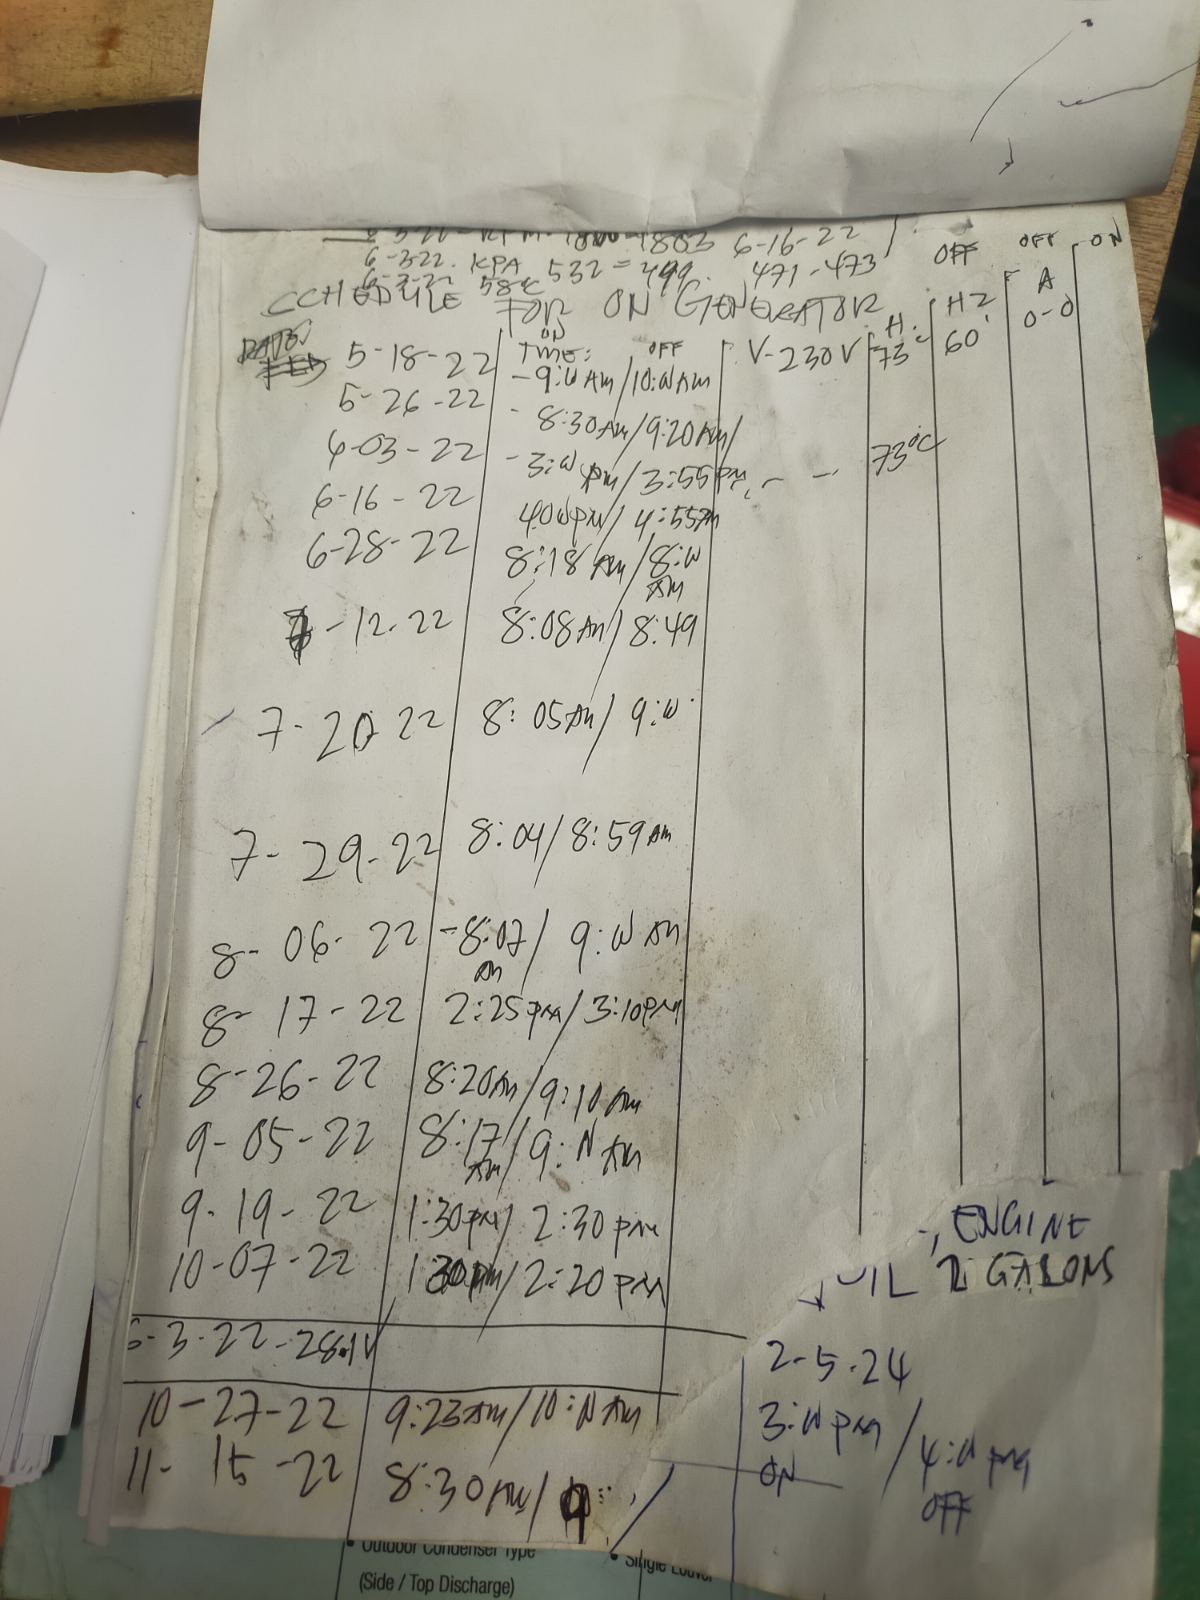 6-3-22. KPA 532 = 499. 471-473
6-3-22 58°C
CCHEDULE FOR ON GENERATOR
OFF OFF ON
DATE: ON TIME: OFF V-230V H. 73°C HZ 60 A 0-0
5-18-22 -9:00 AM/10:00 AM
5-26-22 - 8:30 AM/9:20 AM/
6-03-22 - 3:00 pm/3:55 pm, - - 73°C
6-16-22 4:00 pm/4:55 pm
6-28-22 8:18 AM/8:00 AM
7-12-22 8:08 AM/8:49
7-20-22 8:05 AM/9:00
7-29-22 8:04/8:59 AM
8-06-22 -8:07 AM/9:00 AM
8-17-22 2:25 pm/3:10 pm
8-26-22 8:20 AM/9:10 AM
9-05-22 8:17 AM/9:00 AM
9-19-22 1:30 pm/2:30 pm
10-07-22 1:30 pm/2:20 pm
6-3-22-28.1V
10-27-22 9:23 AM/10:00 AM
11-15-22 8:30 AM/9
ENGINE
OIL 2 GALONS
2-5-24
3:00 pm / 4:00 pm
ON OFF
• Outdoor Condenser Type
(Side / Top Discharge)
• Single Louver